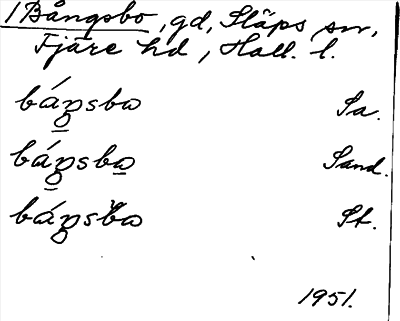 1 Bångsbo, gd, Släps sn,
Fjäre hd, Hall. l.
báŋsbo Sa.
báŋsbo Sand.
báŋsbo St.
1951.